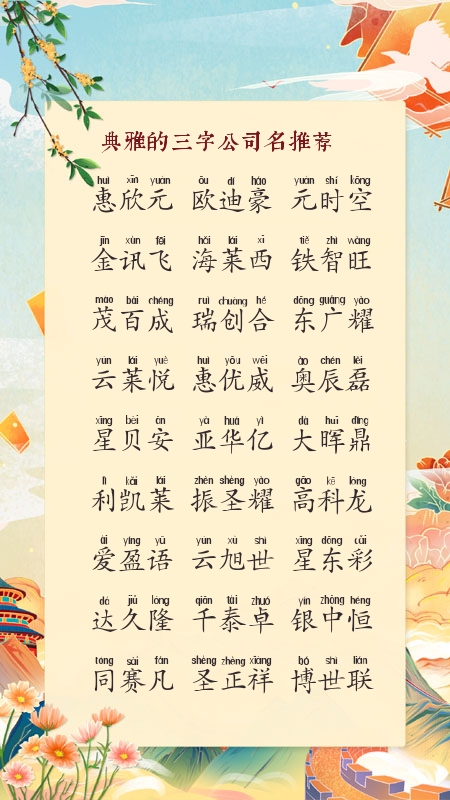 典雅的三字公司名推荐
huì xīn yuán ōu dí háo yuán shí kōng
惠欣元 欧迪豪 元时空
jīn xùn fēi hǎi lái xī tiě zhì wàng
金讯飞 海莱西 铁智旺
mào bǎi chéng ruì chuàng hé dōng guǎng yào
茂百成 瑞创合 东广耀
yún lái yuè huì yōu wēi ào chén lěi
云莱悦 惠优威 奥辰磊
xīng bèi ān yà huá yì dà huī dǐng
星贝安 亚华亿 大晖鼎
lì kǎi lái zhèn shèng yào gāo kē lóng
利凯莱 振圣耀 高科龙
ài yíng yǔ yún xù shì xīng dōng cǎi
爱盈语 云旭世 星东彩
dá jiǔ lóng qiān tài zhuó yín zhōng héng
达久隆 千泰卓 银中恒
tóng sài fán shèng zhèng xiáng bó shì lián
同赛凡 圣正祥 博世联